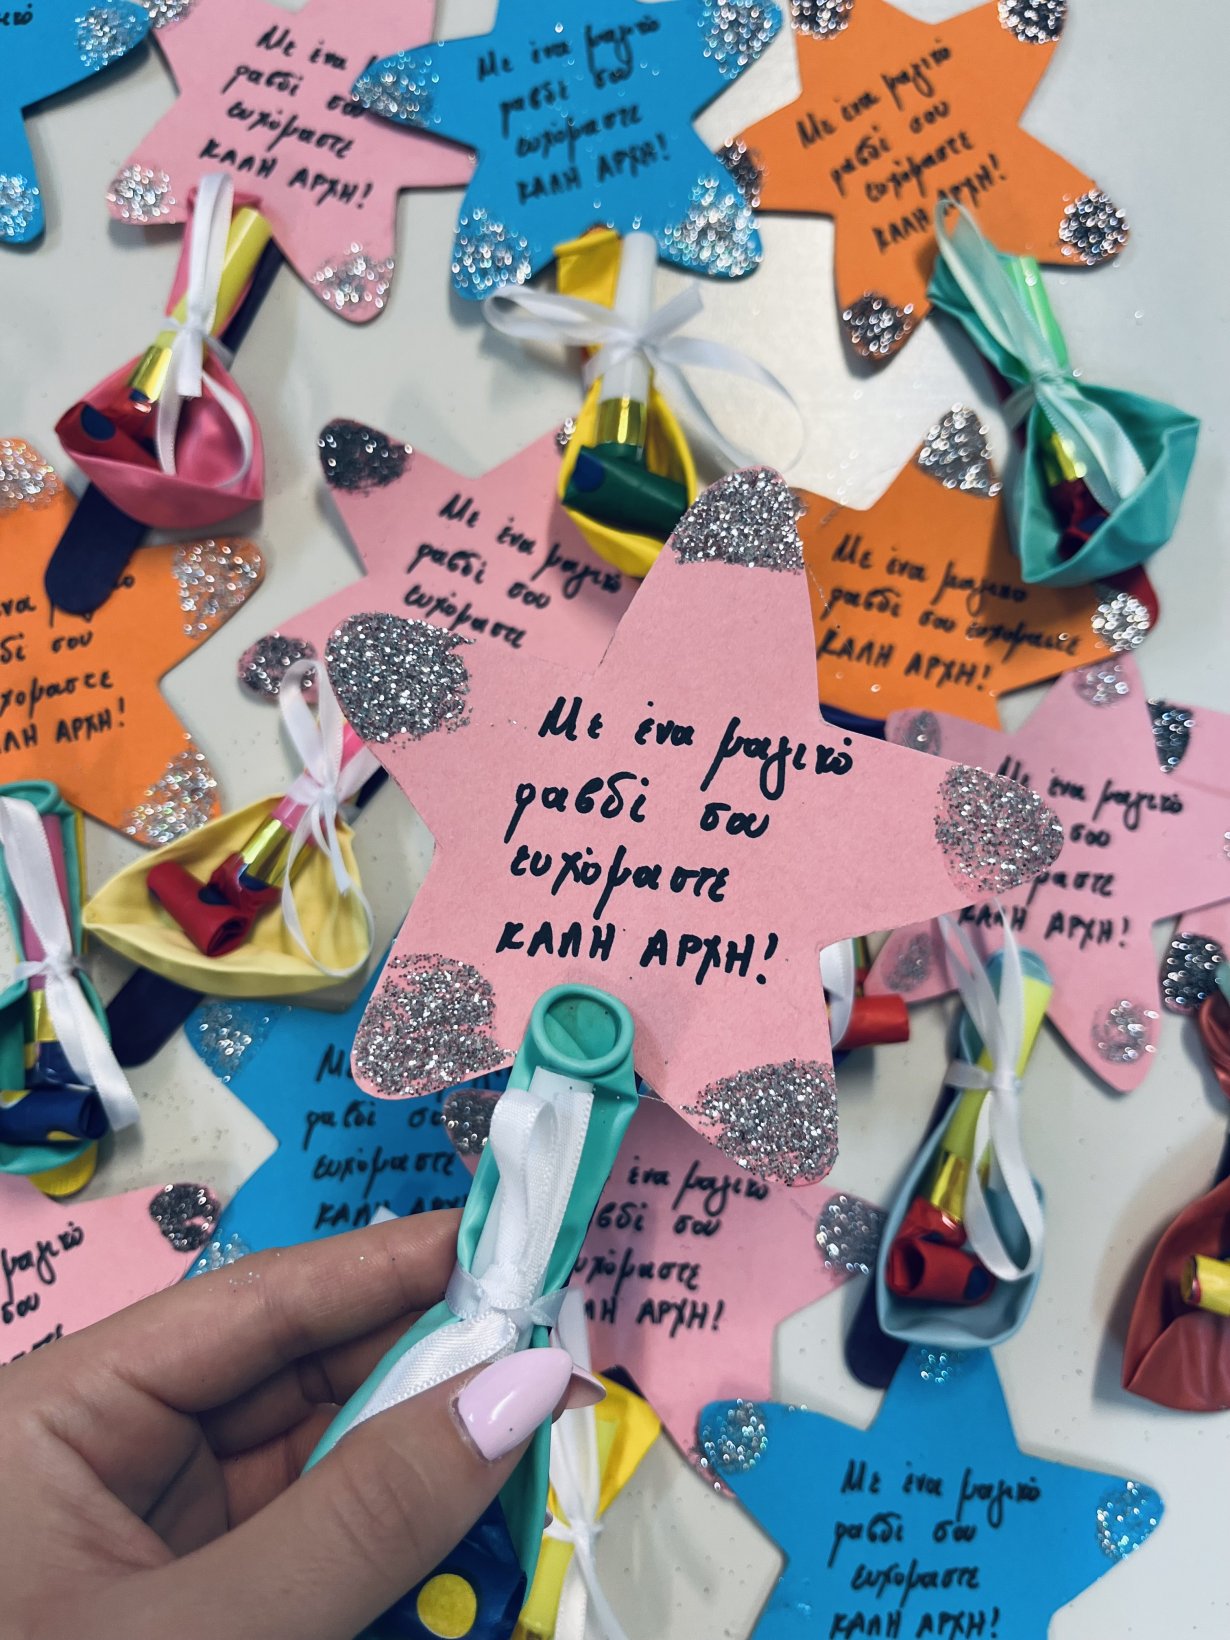 Με ένα
ραβδί σου
ευχόμαστε
ΚΑΛΗ ΑΡΧΗ!
Με ένα μαγικό
ραβδί σου
ευχόμαστε
ΚΑΛΗ ΑΡΧΗ!
Με ένα μαγικό
ραβδί σου
ευχόμαστε
ΚΑΛΗ ΑΡΧΗ!
Με ένα μαγικό
ραβδί σου
ευχόμαστε
Με ένα μαγικό
ραβδί σου ευχόμαστε
ΚΑΛΗ ΑΡΧΗ!
σου
ΑΡΧΗ!
Με ένα μαγικό
ραβδί σου
ευχόμαστε
ΚΑΛΗ ΑΡΧΗ!
Με ένα μαγικό
σου
ΑΡΧΗ!
ραβδί
ευχόμαστε
ένα μαγικό
σου
ΑΡΧΗ!
μαγικό
σου
Με ένα μαγικό
ραβδί σου
ευχόμαστε
ΚΑΛΗ ΑΡΧΗ!